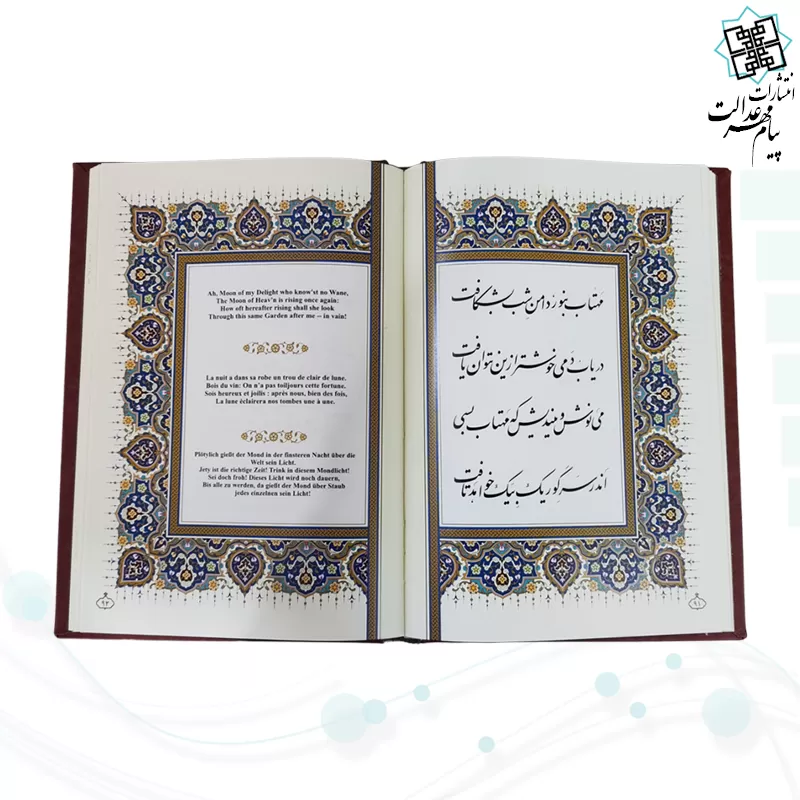 انتشارات
پیام مهر عدالت
مهتاب بنور دامن شب بشکافت
دریاب دمی خوشتر ازین نتوان یافت
می نوش و میندیش که مهتاب بسی
اندر سر گور یک بیک خواهد تافت
۹۱
Ah, Moon of my Delight who know'st no Wane,
The Moon of Heav'n is rising once again:
How oft hereafter rising shall she look
Through this same Garden after me -- in vain!
La nuit a dans sa robe un trou de clair de lune.
Bois du vin: On n'a pas toiljours cette fortune.
Sois heureux et joilis : après nous, bien des fois,
La lune éclairera nos tombes une à une.
Plötylich gießt der Mond in der finsteren Nacht über die
Welt sein Licht.
Jety ist die richtige Zeit! Trink in diesem Mondlicht!
Sei doch froh! Dieses Licht wird noch dauern,
Bis alle zu werden, da gießt der Mond über Staub
jedes einzelnen sein Licht!
۹۲